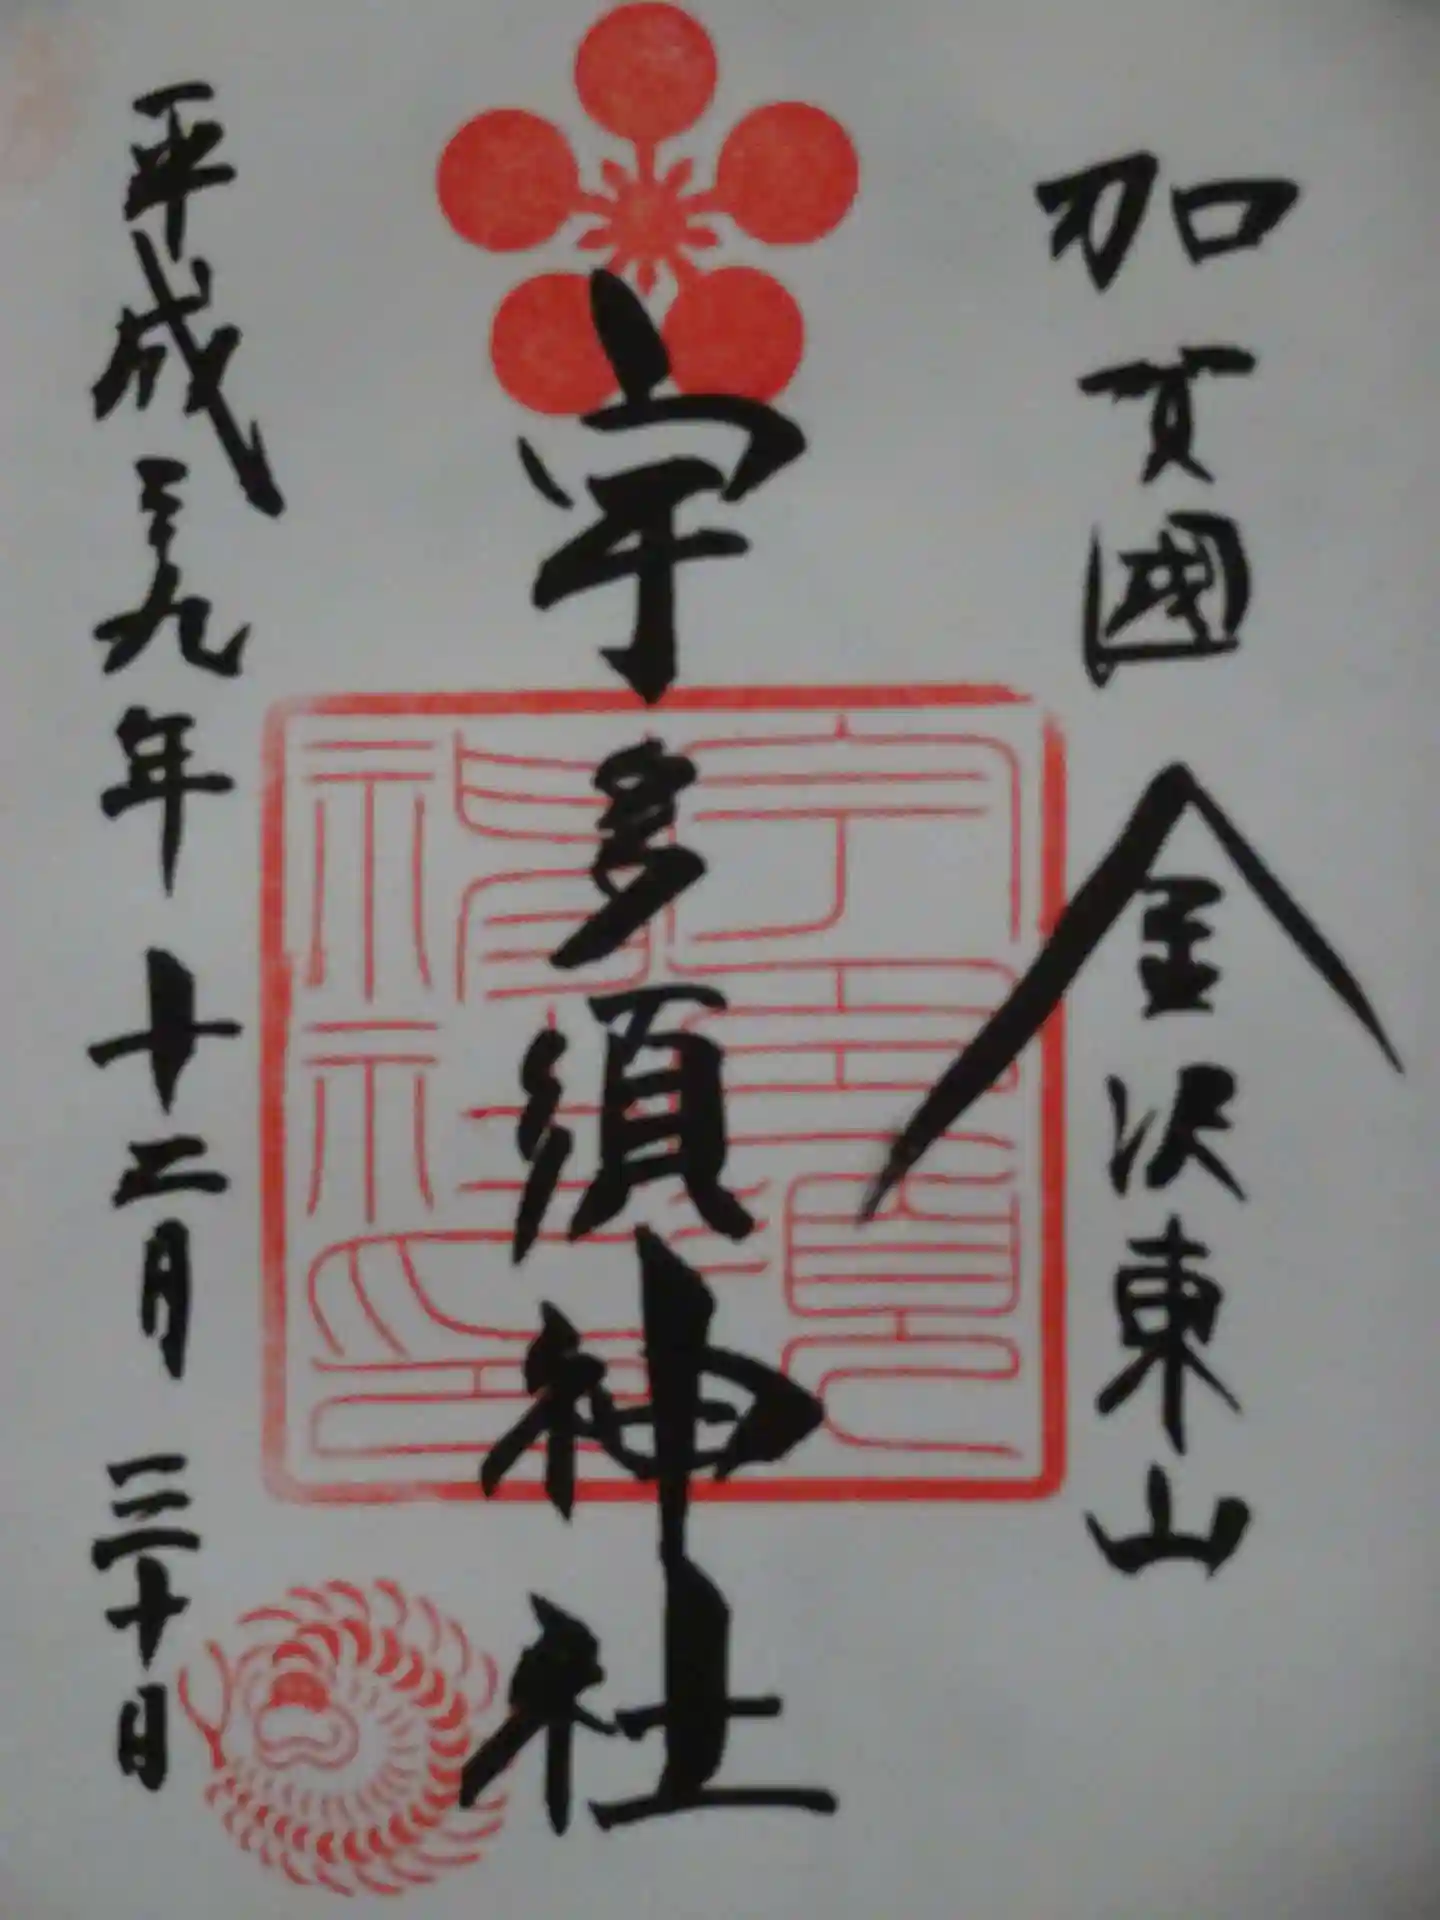 加賀國 金沢東山
宇多須神社
平成二九年 十二月 三十日
宇多須神社印